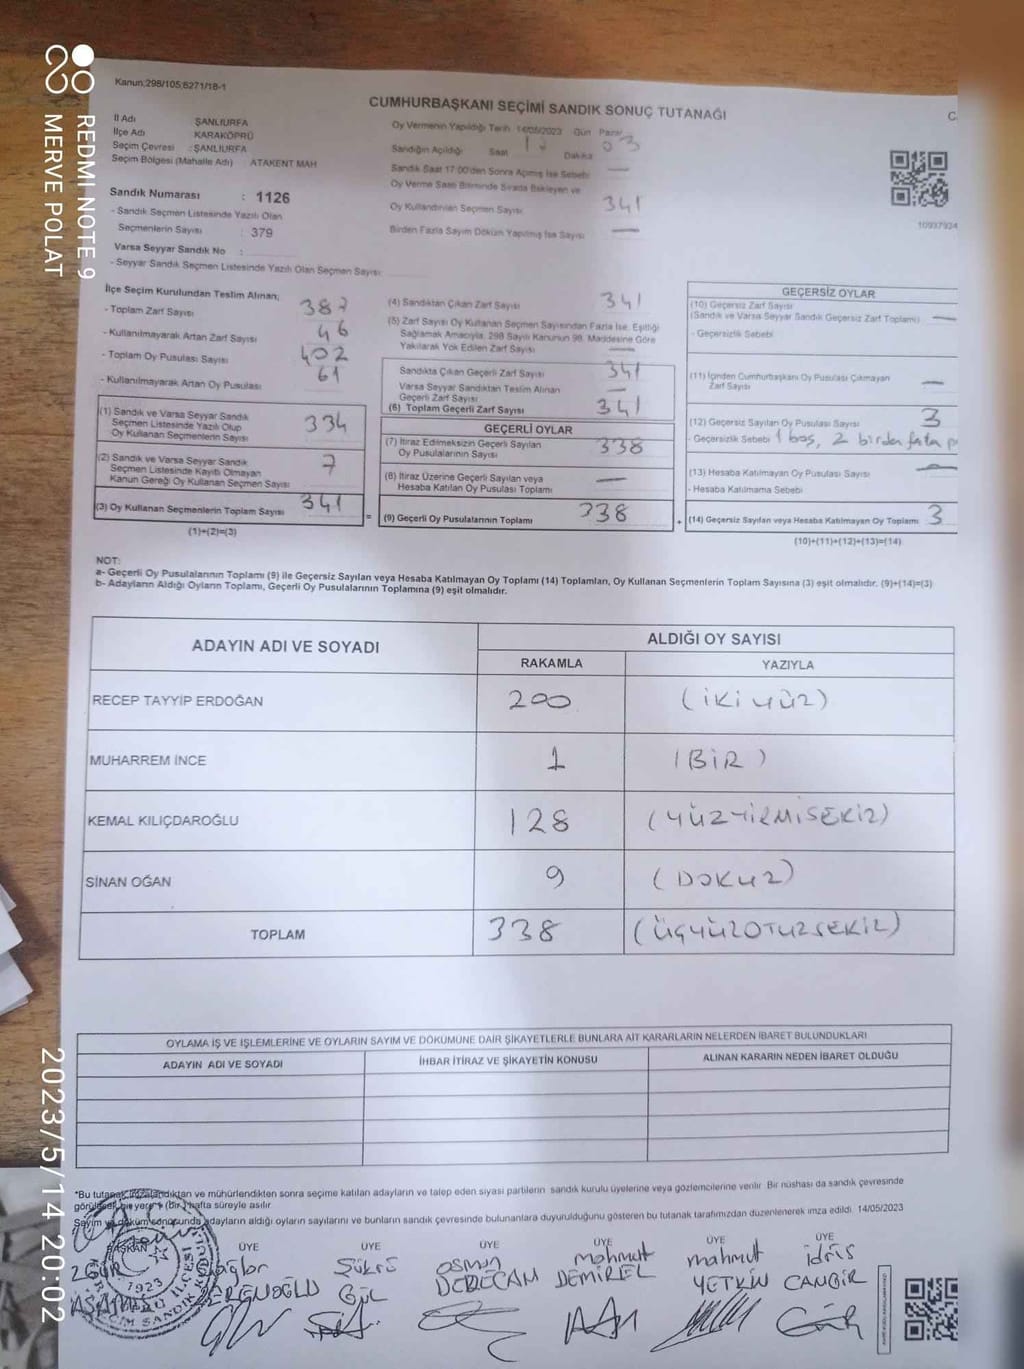 Kanun:298/105;6271/18-1
CUMHURBAŞKANI SEÇİMİ SANDIK SONUÇ TUTANAĞI
İl Adı ŞANLIURFA
İlçe Adı KARAKÖPRÜ
Seçim Çevresi : ŞANLIURFA
Seçim Bölgesi (Mahalle Adı) ATAKENT MAH
Sandık Numarası : 1126
- Sandık Seçmen Listesinde Yazılı Olan
Seçmenlerin Sayısı : 379
Varsa Seyyar Sandık No :
- Seyyar Sandık Seçmen Listesinde Yazılı Olan Seçmen Sayısı
Oy Vermenin Yapıldığı Tarih 14/05/2023 Gün Pazar
Sandığın Açıldığı Saat Dakika 03
Sandık Saat 17:00'den Sonra Açılmış İse Sebebi —
Oy Verme Saati Bitiminde Sırada Bekleyen ve
Oy Kullandırılan Seçmen Sayısı 341
Birden Fazla Sayım Döküm Yapılmış İse Sayısı —
10997924
İlçe Seçim Kurulundan Teslim Alınan;
- Toplam Zarf Sayısı 387
- Kullanılmayarak Artan Zarf Sayısı 46
- Toplam Oy Pusulası Sayısı 402
- Kullanılmayarak Artan Oy Pusulası 61
(1) Sandık ve Varsa Seyyar Sandık
Seçmen Listesinde Yazılı Olup
Oy Kullanan Seçmenlerin Sayısı 334
(2) Sandık ve Varsa Seyyar Sandık
Seçmen Listesinde Kayıtlı Olmayan
Kanun Gereği Oy Kullanan Seçmen Sayısı 7
(3) Oy Kullanan Seçmenlerin Toplam Sayısı 341
(1)+(2)=(3)
(4) Sandıktan Çıkan Zarf Sayısı 341
(5) Zarf Sayısı Oy Kullanan Seçmen Sayısından Fazla İse, Eşitliği
Sağlamak Amacıyla, 298 Sayılı Kanunun 98. Maddesine Göre
Yakılarak Yok Edilen Zarf Sayısı —
Sandıkta Çıkan Geçerli Zarf Sayısı 341
Varsa Seyyar Sandıktan Teslim Alınan
Geçerli Zarf Sayısı —
(6) Toplam Geçerli Zarf Sayısı 341
GEÇERLİ OYLAR
(7) İtiraz Edilmeksizin Geçerli Sayılan
Oy Pusulalarının Sayısı 338
(8) İtiraz Üzerine Geçerli Sayılan veya
Hesaba Katılan Oy Pusulası Toplamı —
= (9) Geçerli Oy Pusulalarının Toplamı 338
GEÇERSİZ OYLAR
(10) Geçersiz Zarf Sayısı
(Sandık ve Varsa Seyyar Sandık Geçersiz Zarf Toplamı) —
- Geçersizlik Sebebi
(11) İçinden Cumhurbaşkanı Oy Pusulası Çıkmayan
Zarf Sayısı —
(12) Geçersiz Sayılan Oy Pusulası Sayısı 3
- Geçersizlik Sebebi 1 boş, 2 birden fazla
(13) Hesaba Katılmayan Oy Pusulası Sayısı —
- Hesaba Katılmama Sebebi
+ (14) Geçersiz Sayılan veya Hesaba Katılmayan Oy Toplamı 3
(10)+(11)+(12)+(13)=(14)
NOT:
a- Geçerli Oy Pusulalarının Toplamı (9) ile Geçersiz Sayılan veya Hesaba Katılmayan Oy Toplamı (14) Toplamları, Oy Kullanan Seçmenlerin Toplam Sayısına (3) eşit olmalıdır. (9)+(14)=(3)
b- Adayların Aldığı Oyların Toplamı, Geçerli Oy Pusulalarının Toplamına (9) eşit olmalıdır.
ADAYIN ADI VE SOYADI ALDIĞI OY SAYISI
RAKAMLA YAZIYLA
RECEP TAYYİP ERDOĞAN 200 (İKİYÜZ)
MUHARREM İNCE 1 (BİR)
KEMAL KILIÇDAROĞLU 128 (YÜZYİRMİSEKİZ)
SİNAN OĞAN 9 (DOKUZ)
TOPLAM 338 (ÜÇYÜZOTUZSEKİZ)
OYLAMA İŞ VE İŞLEMLERİNE VE OYLARIN SAYIM VE DÖKÜMÜNE DAİR ŞİKAYETLERLE BUNLARA AİT KARARLARIN NELERDEN İBARET BULUNDUKLARI
ADAYIN ADI VE SOYADI İHBAR İTİRAZ VE ŞİKAYETİN KONUSU ALINAN KARARIN NEDEN İBARET OLDUĞU
*Bu tutanak imzalandıktan ve mühürlendikten sonra seçime katılan adayların ve talep eden siyasi partilerin sandık kurulu üyelerine veya gözlemcilerine verilir. Bir nüshası da sandık çevresinde
görülecek bir yere 1 (bir) hafta süreyle asılır.
Sayım ve döküm sonucunda adayların aldığı oyların sayılarını ve bunların sandık çevresinde bulunanlara duyurulduğunu gösteren bu tutanak tarafımızdan düzenlenerek imza edildi. 14/05/2023
BAŞKAN ÜYE ÜYE ÜYE ÜYE ÜYE ÜYE
Şükrü osman mahmut mahmut idris
GÜL DERECAM DEMİREL YETKİN CANBİR
1923
REDMI NOTE 9
MERVE POLAT
2023/5/14 20:02